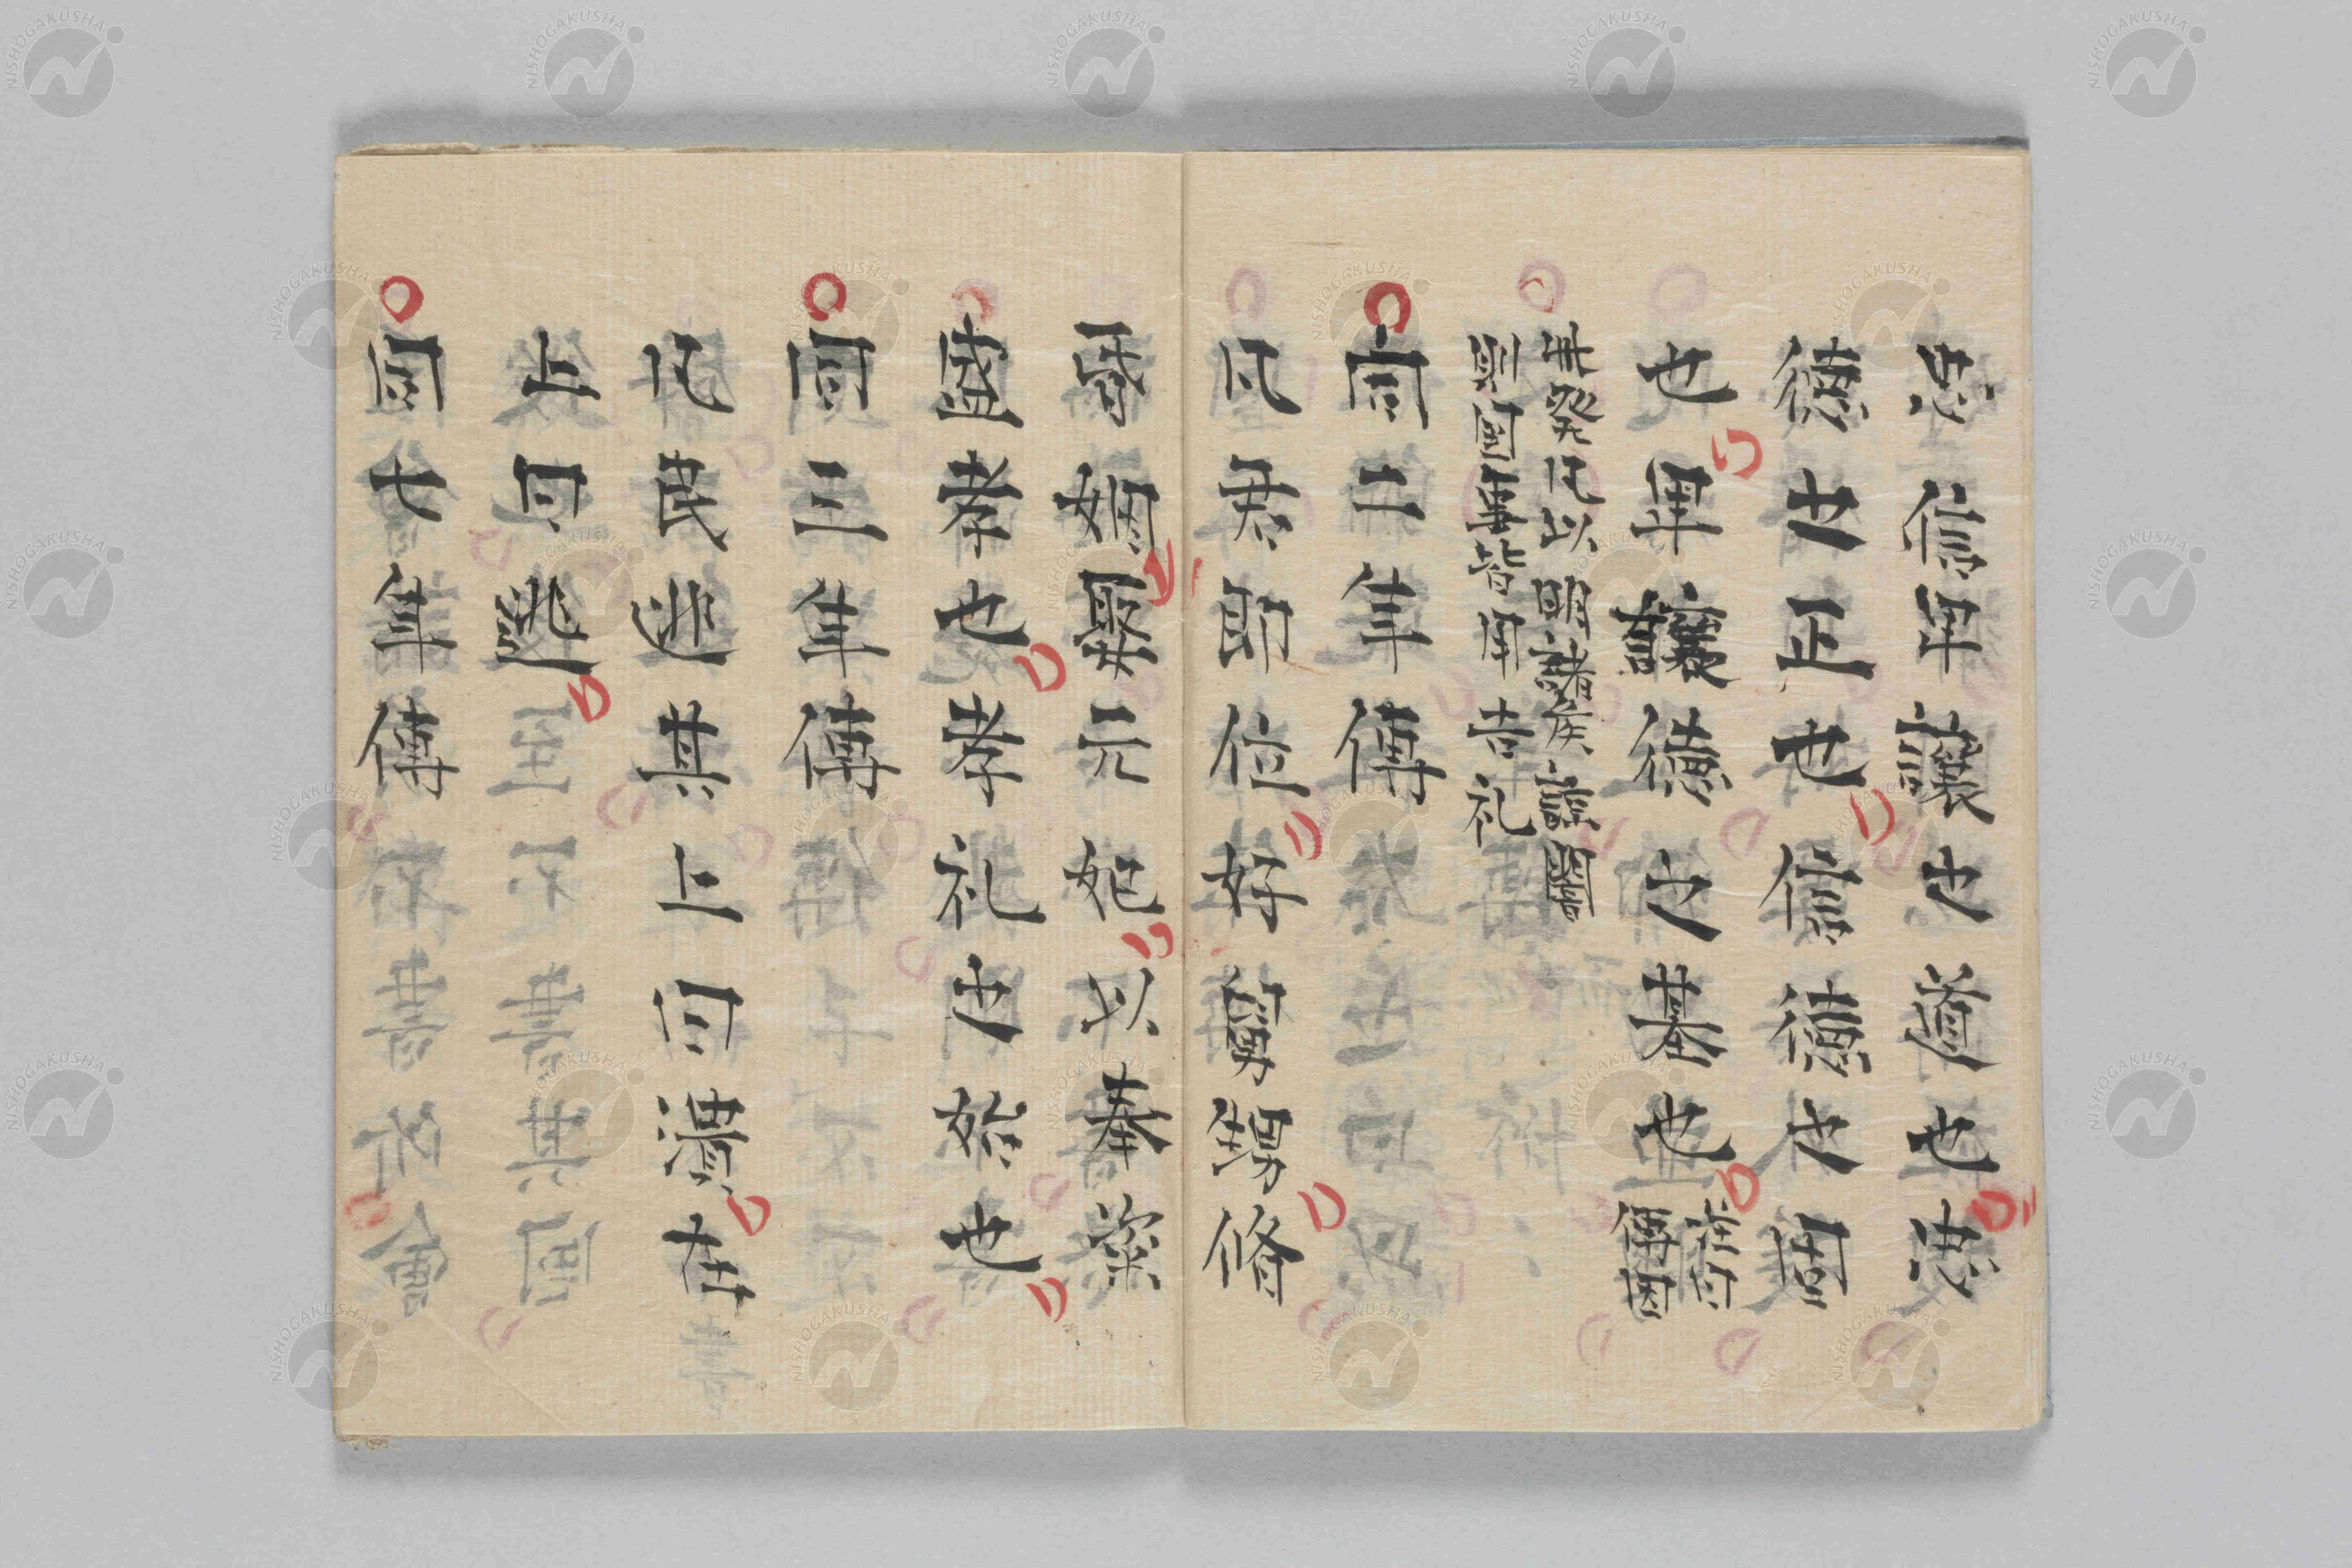 忠信卑讓之道也忠
德之正也信德之固
也卑讓德之基也注曰傳因
此發凡以明諸侯諒闇
則国事皆用吉礼
同二年傳
凡君即位好舅甥脩
昏姻娶元妃以奉粢
盛孝也孝礼之始也
同三年傳
凡民逃其上曰潰在
上曰逃
同七年傳
NISHOGAKUSHA